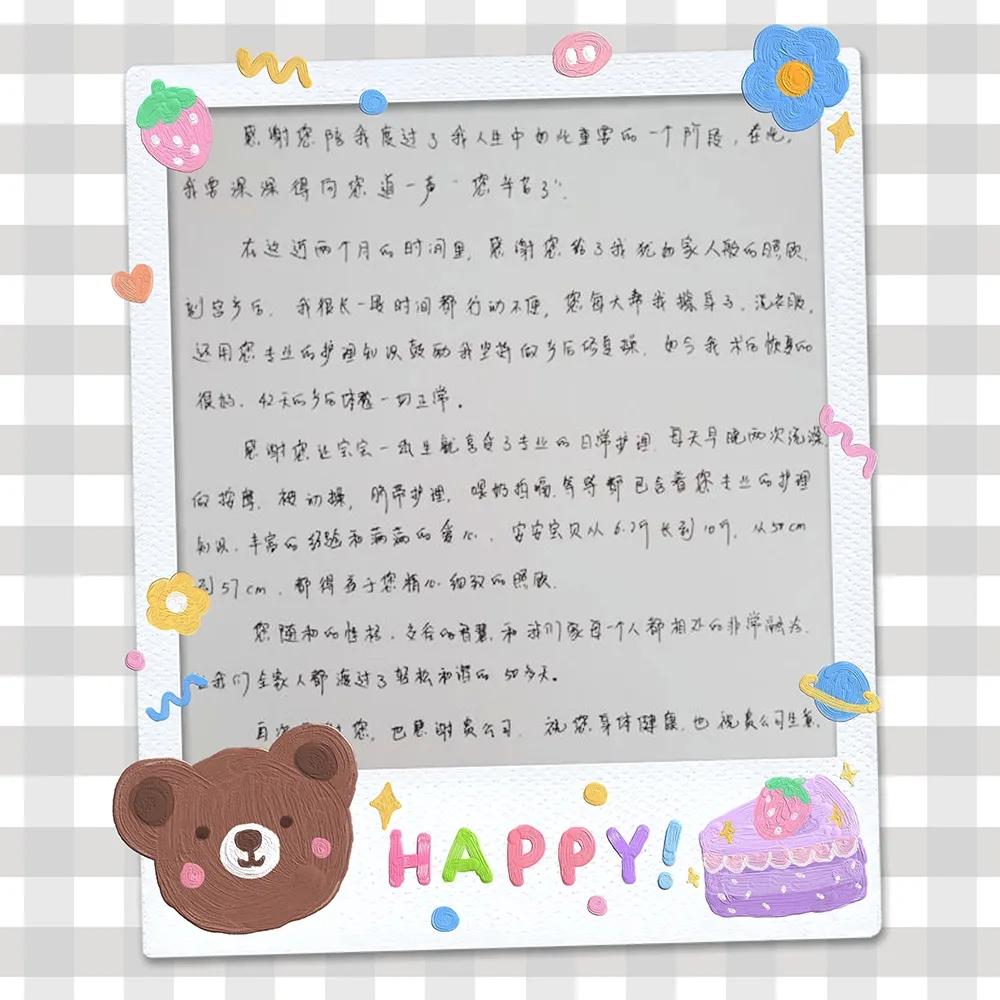 感谢您陪我度过了我人生中如此重要的一个阶段,在此,
我要深深得向您道一声“您辛苦了”.
在这近两个月的时间里,感谢您给了我犹如家人般的照顾.
剖宫产后,我很长一段时间都行动不便,您每天帮我擦身子,洗衣服,
还用您专业的护理知识鼓励我坚持做产后修复操,如今我术后恢复的
很好,42天的产后体检一切正常。
感谢您让宝宝一出生就享受了专业的日常护理.每天早晚两次洗澡
做按摩,被动操,脐带护理,喂奶拍嗝.等等都包含着您专业的护理
知识.丰富的经验和满满的爱心.安安宝贝从6.2斤长到10斤,从50cm
到57cm.都得益于您精心细致的照顾.
您随和的性格,的智慧,和我们家每一个人都相处的非常融洽.
我们全家人都渡过了轻松和谐的50多天。
再次 谢您,也感谢贵公司.祝您身体健康.也祝贵公司生意.
HAPPY!